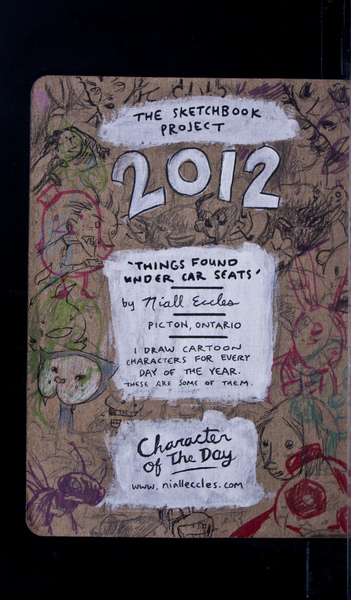 THE SKETCHBOOK
PROJECT
2012
"THINGS FOUND
UNDER CAR SEATS"
by Niall Eccles
PICTON, ONTARIO
I DRAW CARTOON
CHARACTERS FOR EVERY
DAY OF THE YEAR.
THESE ARE SOME OF THEM.
Character
of The Day
www.nialleccles.com